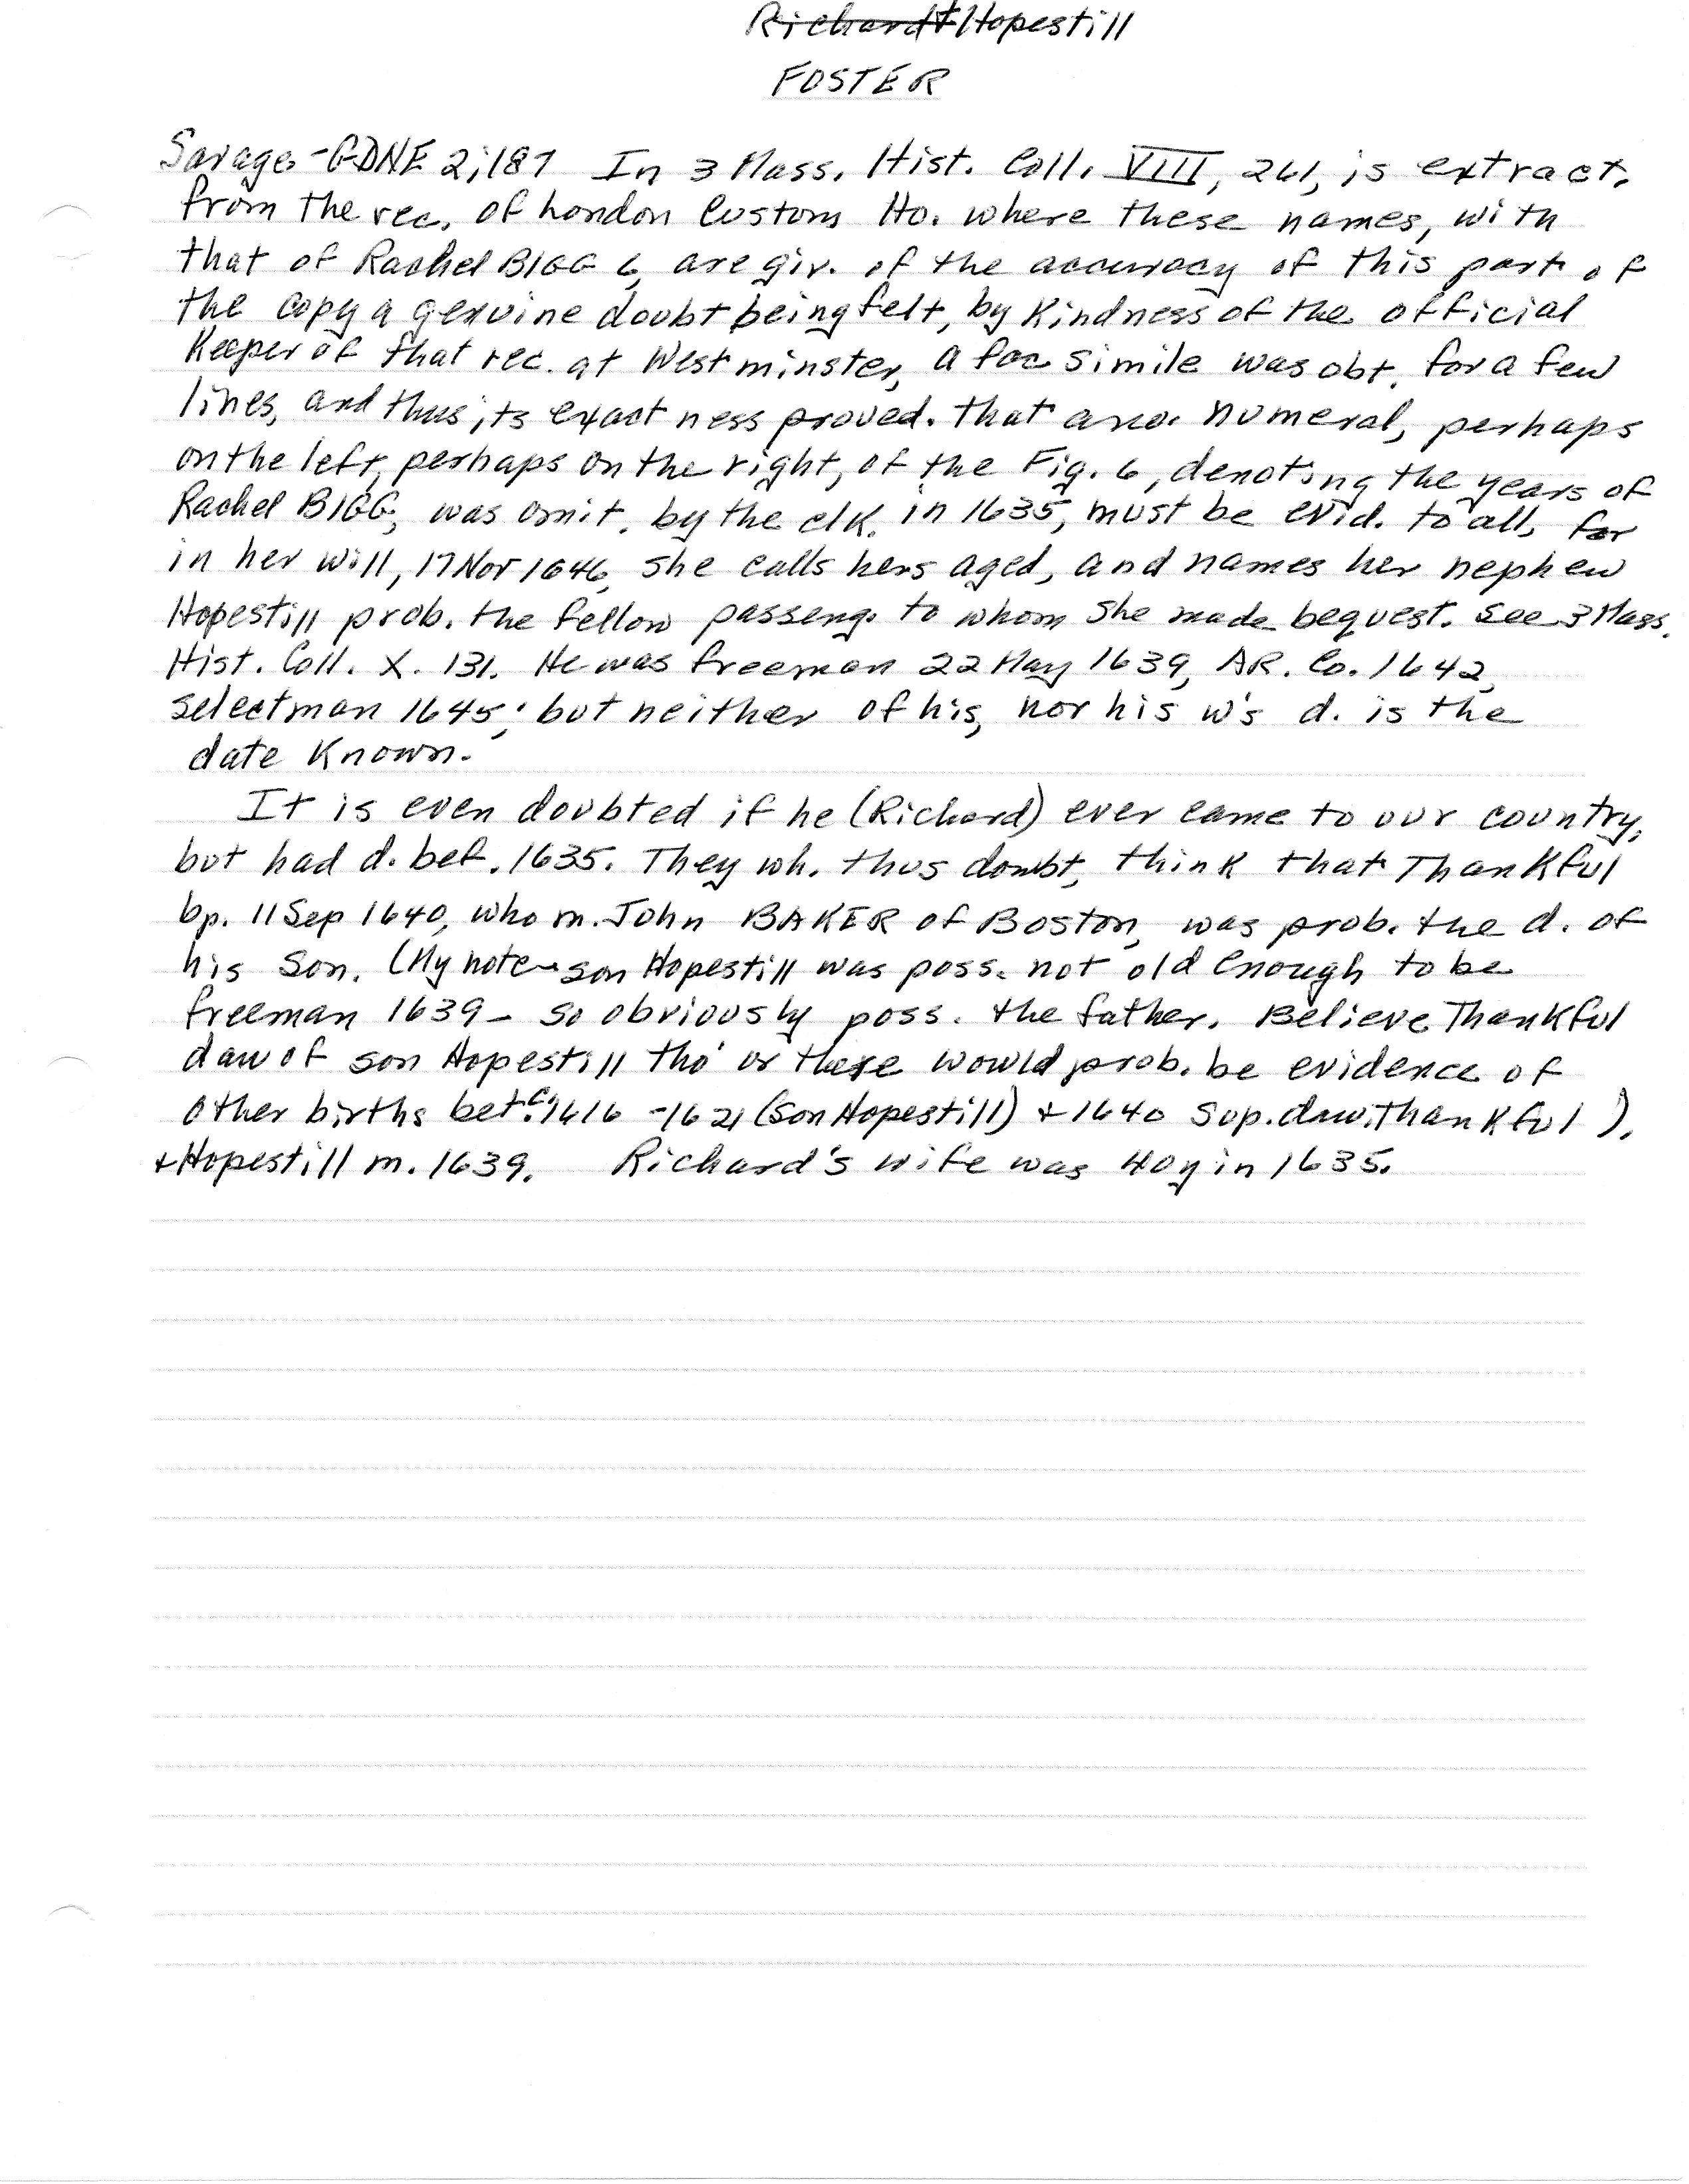 Richard + Hopestill
FOSTER
Savage - GDNE 2;187 In 3 Mass. Hist. Coll. VIII, 261, is extract.
from the rec. of London Custom Ho. where these names, with
that of Rachel BIGG 6, are giv. of the accuracy of this part of
the copy a genuine doubt being felt, by kindness of the official
Keeper of that rec. at Westminster, a fac simile was obt. for a few
lines, and thus its exactness proved. That ano. numeral, perhaps
on the left, perhaps on the right, of the Fig. 6, denoting the years of
Rachel BIGG, was omit. by the clk. in 1635, must be evid. to all, for
in her will, 17 Nov 1646, she calls hers aged, and names her nephew
Hopestill prob. the fellow passeng. to whom she made bequest. See 3 Mass.
Hist. Coll. X. 131. He was freeman 22 May 1639, AR. Co. 1642,
selectman 1645; but neither of his, nor his w's d. is the
date known.
It is even doubted if he (Richard) ever came to our country,
but had d. bef. 1635. They wh. thus doubt, think that Thankful
bp. 11 Sep 1640, who m. John BAKER of Boston, was prob. the d. of
his son. (My note - son Hopestill was poss. not old enough to be
freeman 1639 - so obviously poss. the father. Believe Thankful
dau of son Hopestill tho' or there would prob. be evidence of
other births bet. c. 1616 - 1621 (son Hopestill) + 1640 Sup. dau. Thankful).
+ Hopestill m. 1639. Richard's wife was 40y in 1635.